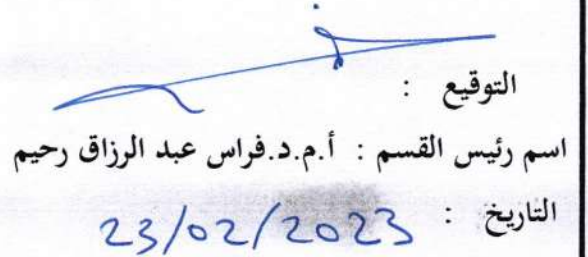 التوقيع :
اسم رئيس القسم : أ.م.د.فراس عبد الرزاق رحيم
التاريخ : 23/02/2023